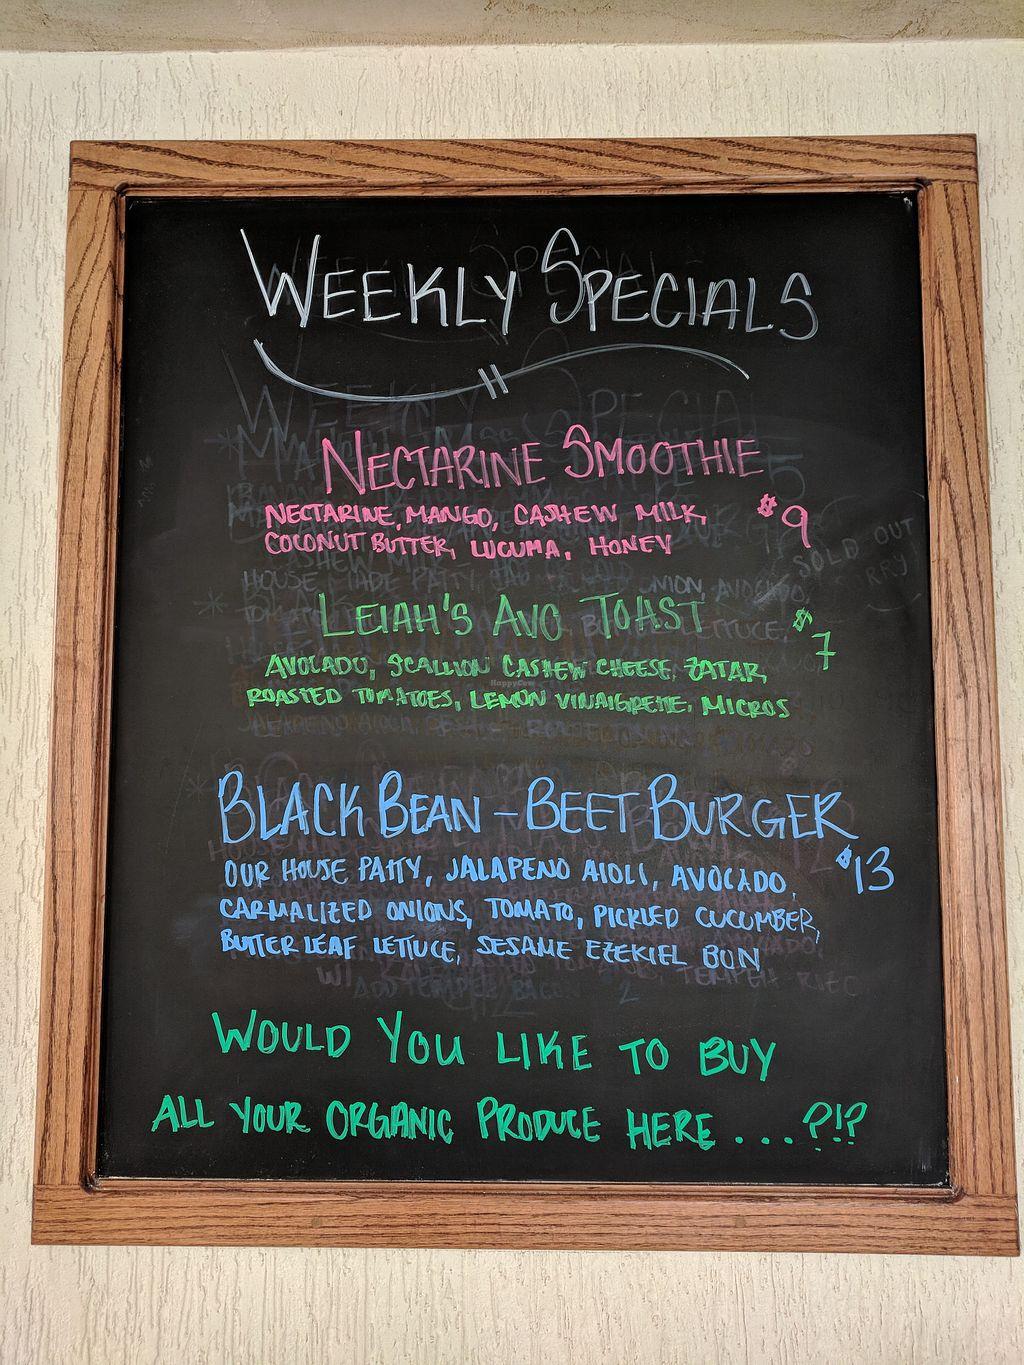 WEEKLY SPECIALS
NECTARINE SMOOTHIE
NECTARINE, MANGO, CASHEW MILK, $9
COCONUT BUTTER, LUCUMA, HONEY
SOLD OUT
LEIAH'S AVO TOAST $7
AVOCADO, SCALLION CASHEW CHEESE, ZATAR,
ROASTED TOMATOES, LEMON VINAIGRETE, MICROS
BLACK BEAN - BEET BURGER
OUR HOUSE PATTY, JALAPENO AIOLI, AVOCADO, $13
CARMALIZED ONIONS, TOMATO, PICKLED CUCUMBER,
BUTTER LEAF LETTUCE, SESAME EZEKIEL BUN
WOULD YOU LIKE TO BUY
ALL YOUR ORGANIC PRODUCE HERE . . . ?!?